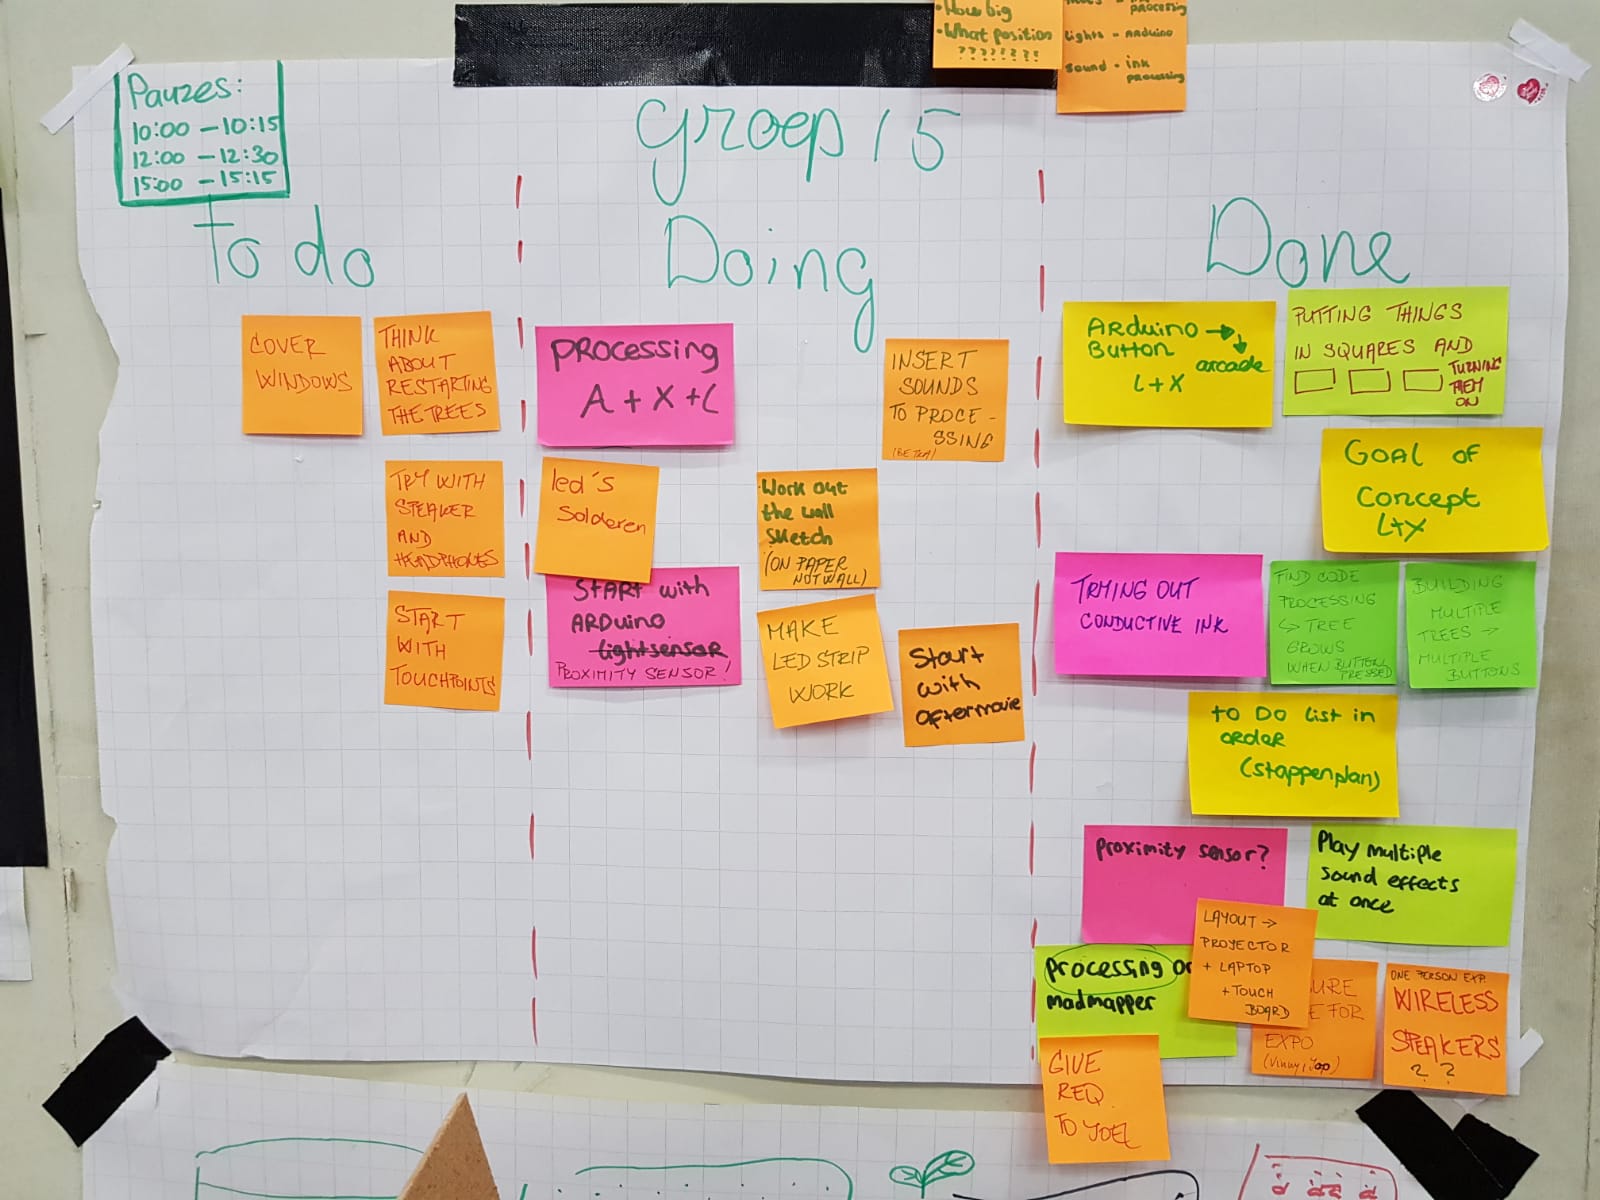 • How big
• What position
????????
processing
lights - Arduino
sound - ink
processing
Pauzes:
10:00 - 10:15
12:00 - 12:30
15:00 - 15:15
groep 15
To do
Doing
Done
COVER
WINDOWS
THINK
ABOUT
RESTARTING
THE TREES
TRY WITH
SPEAKER
AND
HEADPHONES
START
WITH
TOUCHPOINTS
PROCESSING
A + X + L
INSERT
SOUNDS
TO PROCE-
SSING
led's
Solderen
Work out
the wall
sketch
(ON PAPER
NOT WALL)
START with
ARDuino
lightsensor
PROXIMITY SENSOR!
MAKE
LED STRIP
WORK
Start
with
aftermovie
ARduino →
Button
arcade
L+X
PUTTING THINGS
IN SQUARES AND
TURNING
THEM
ON
GOAL OF
Concept
L+X
TRYING OUT
CONDUCTIVE INK
FIND CODE
PROCESSING
↳ TREE
GROWS
WHEN BUTTON
PRESSED
BUILDING
MULTIPLE
TREES →
MULTIPLE
BUTTONS
to Do list in
order
(stappenplan)
proximity sensor?
Play multiple
sound effects
at once
processing or
madmapper
LAYOUT →
PROYECTOR
+ LAPTOP
+ TOUCH
BOARD
URE
E FOR
EXPO
(Vinny, Jap)
ONE PERSON EXP.
WIRELESS
SPEAKERS
? ?
GIVE
REQ
TO JOEL